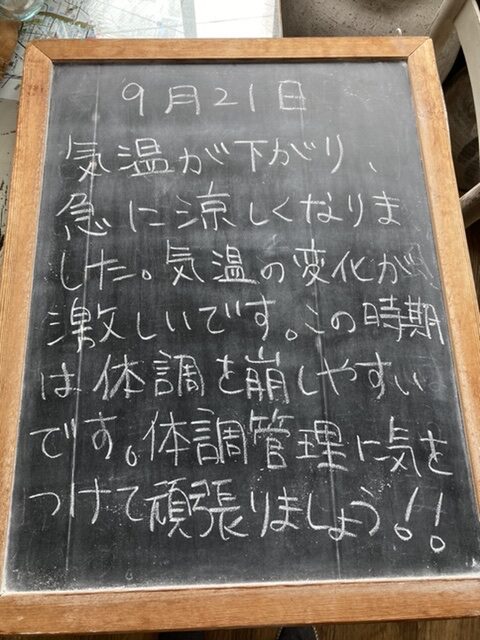 9月21日
気温が下がり、
急に涼しくなりま
した。気温の変化が
激しいです。この時期
は体調を崩しやすい
です。体調管理に気を
つけて頑張りましょう!!